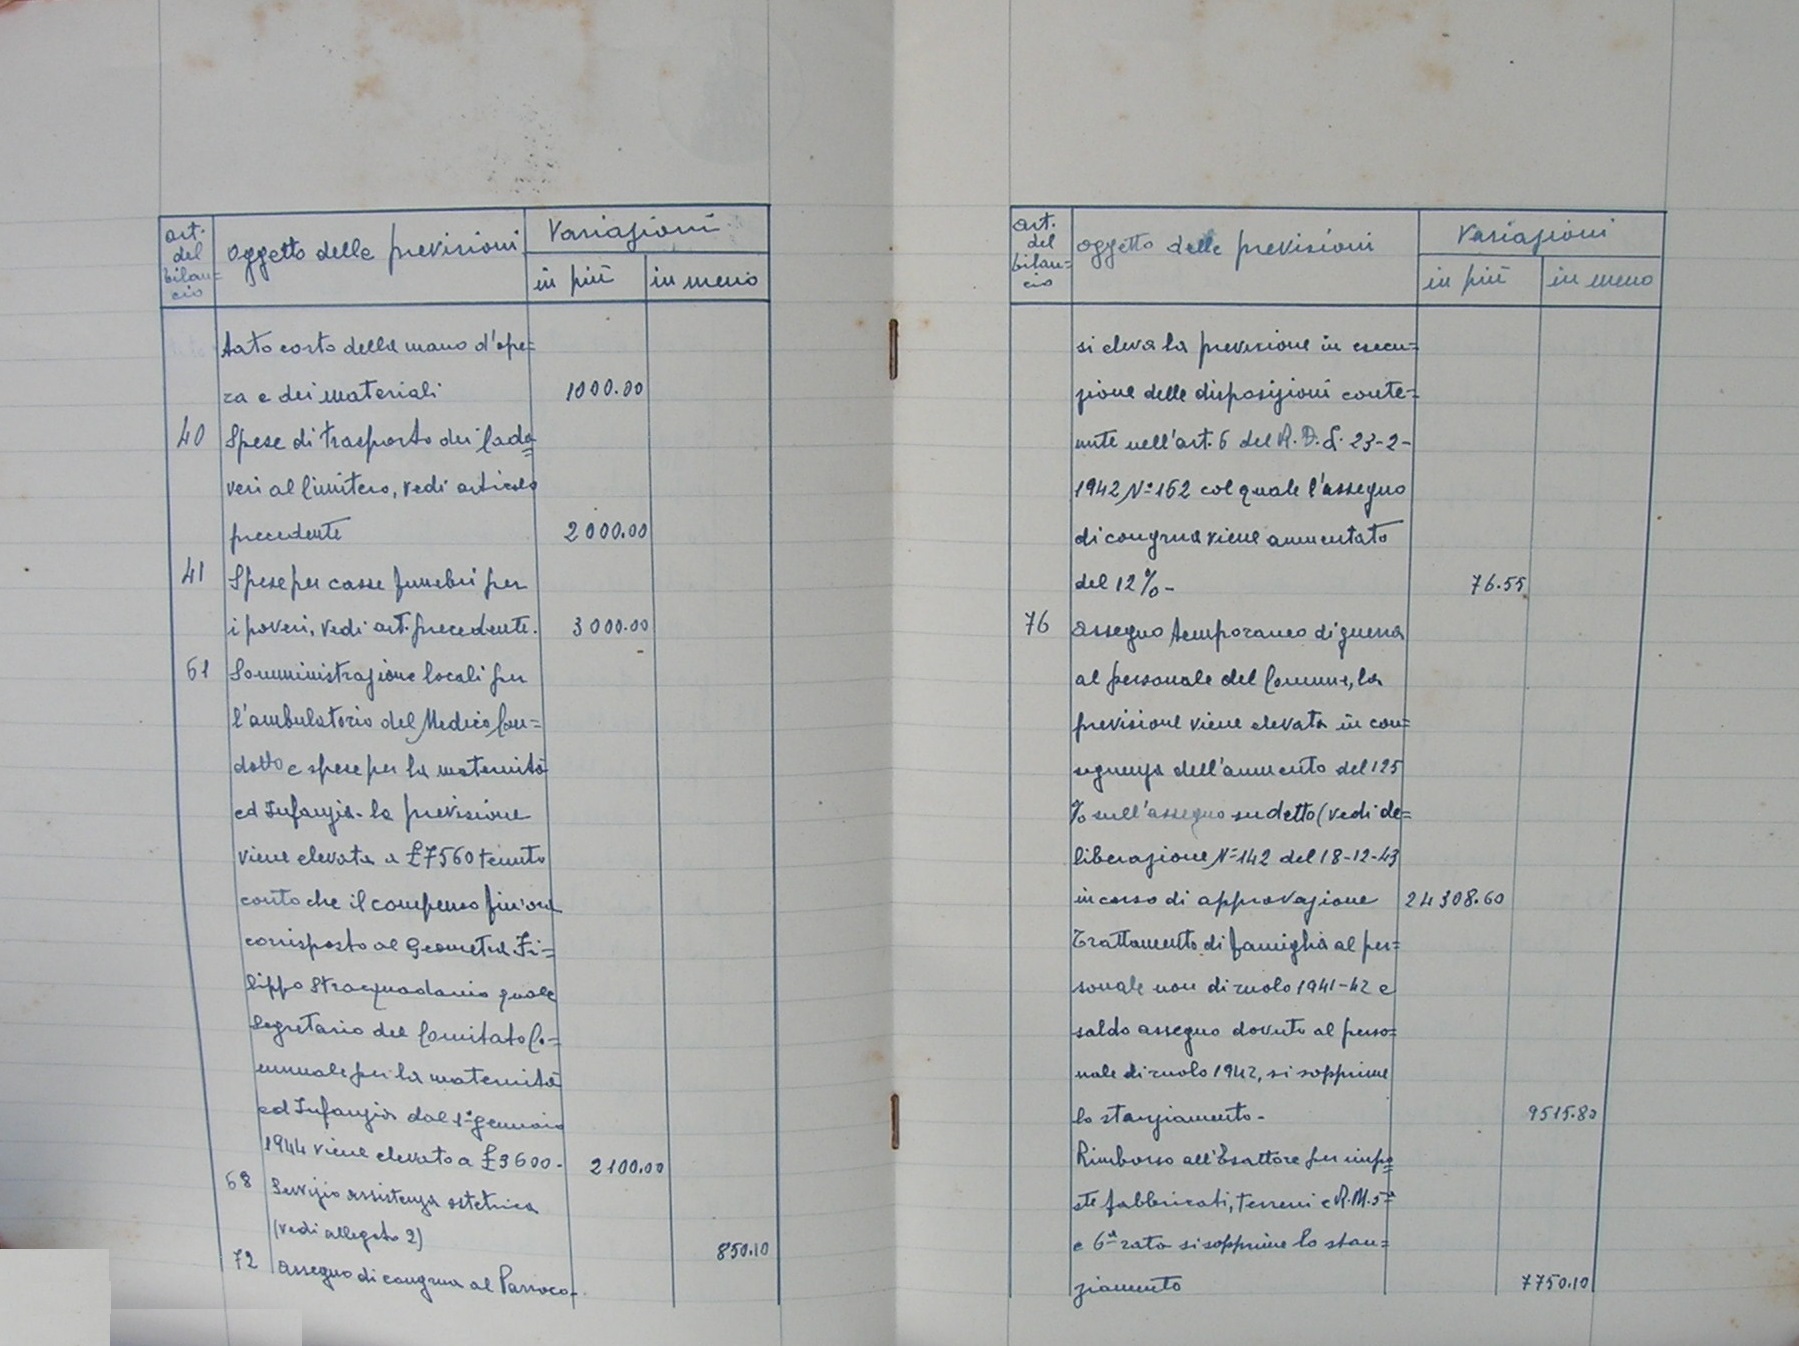 art.
del
bilan=
cio
Oggetto delle previsioni
Variazioni
in più
in meno
tato costo della mano d'ope=
ra e dei materiali 1000.00
40 Spese di trasporto dei Cada=
veri al Cimitero, vedi articolo
precedente 2000.00
41 Spese per casse funebri per
i poveri, vedi art. precedente. 3000.00
61 Somministrazione locali per
l'ambulatorio del Medico Con=
dotto e spese per la maternità
ed Infanzia. la previsione
viene elevata a £7560 tenuto
conto che il compenso fin'ora
corrisposto al Geometra Fi=
lippo Stracquadanio quale
Segretario del Comitato Co=
munale per la maternità
ed Infanzia dal 1° gennaio
1944 viene elevato a £3600- 2100.00
68 Servizio assistenza ostetrica
(vedi allegato 2) 850.10
72 Assegno di congrua al Parroco-
art.
del
bilan=
cio
Oggetto delle previsioni
Variazioni
in più
in meno
si eleva la previsione in esecu=
zione delle disposizioni conte=
nute nell'art. 6 del R.D.L. 23-2-
1942 N° 162 col quale l'assegno
di congrua viene aumentato
del 12%- 76.55
76 Assegno temporaneo di guerra
al personale del Comune, la
previsione viene elevata in con=
seguenza dell'aumento del 125
% sull'assegno sudetto (vedi de=
liberazione N° 142 del 18-12-43
in corso di approvazione 24308.60
Trattamento di famiglia al per=
sonale non di ruolo 1941-42 e
saldo assegno dovuto al perso=
nale di ruolo 1942, si sopprime
lo stanziamento- 9515.80
Rimborso all'Esattore per impo=
ste fabbricati, terreni e R.M. 5ª
e 6ª rata si sopprime lo stan=
ziamento 7750.10